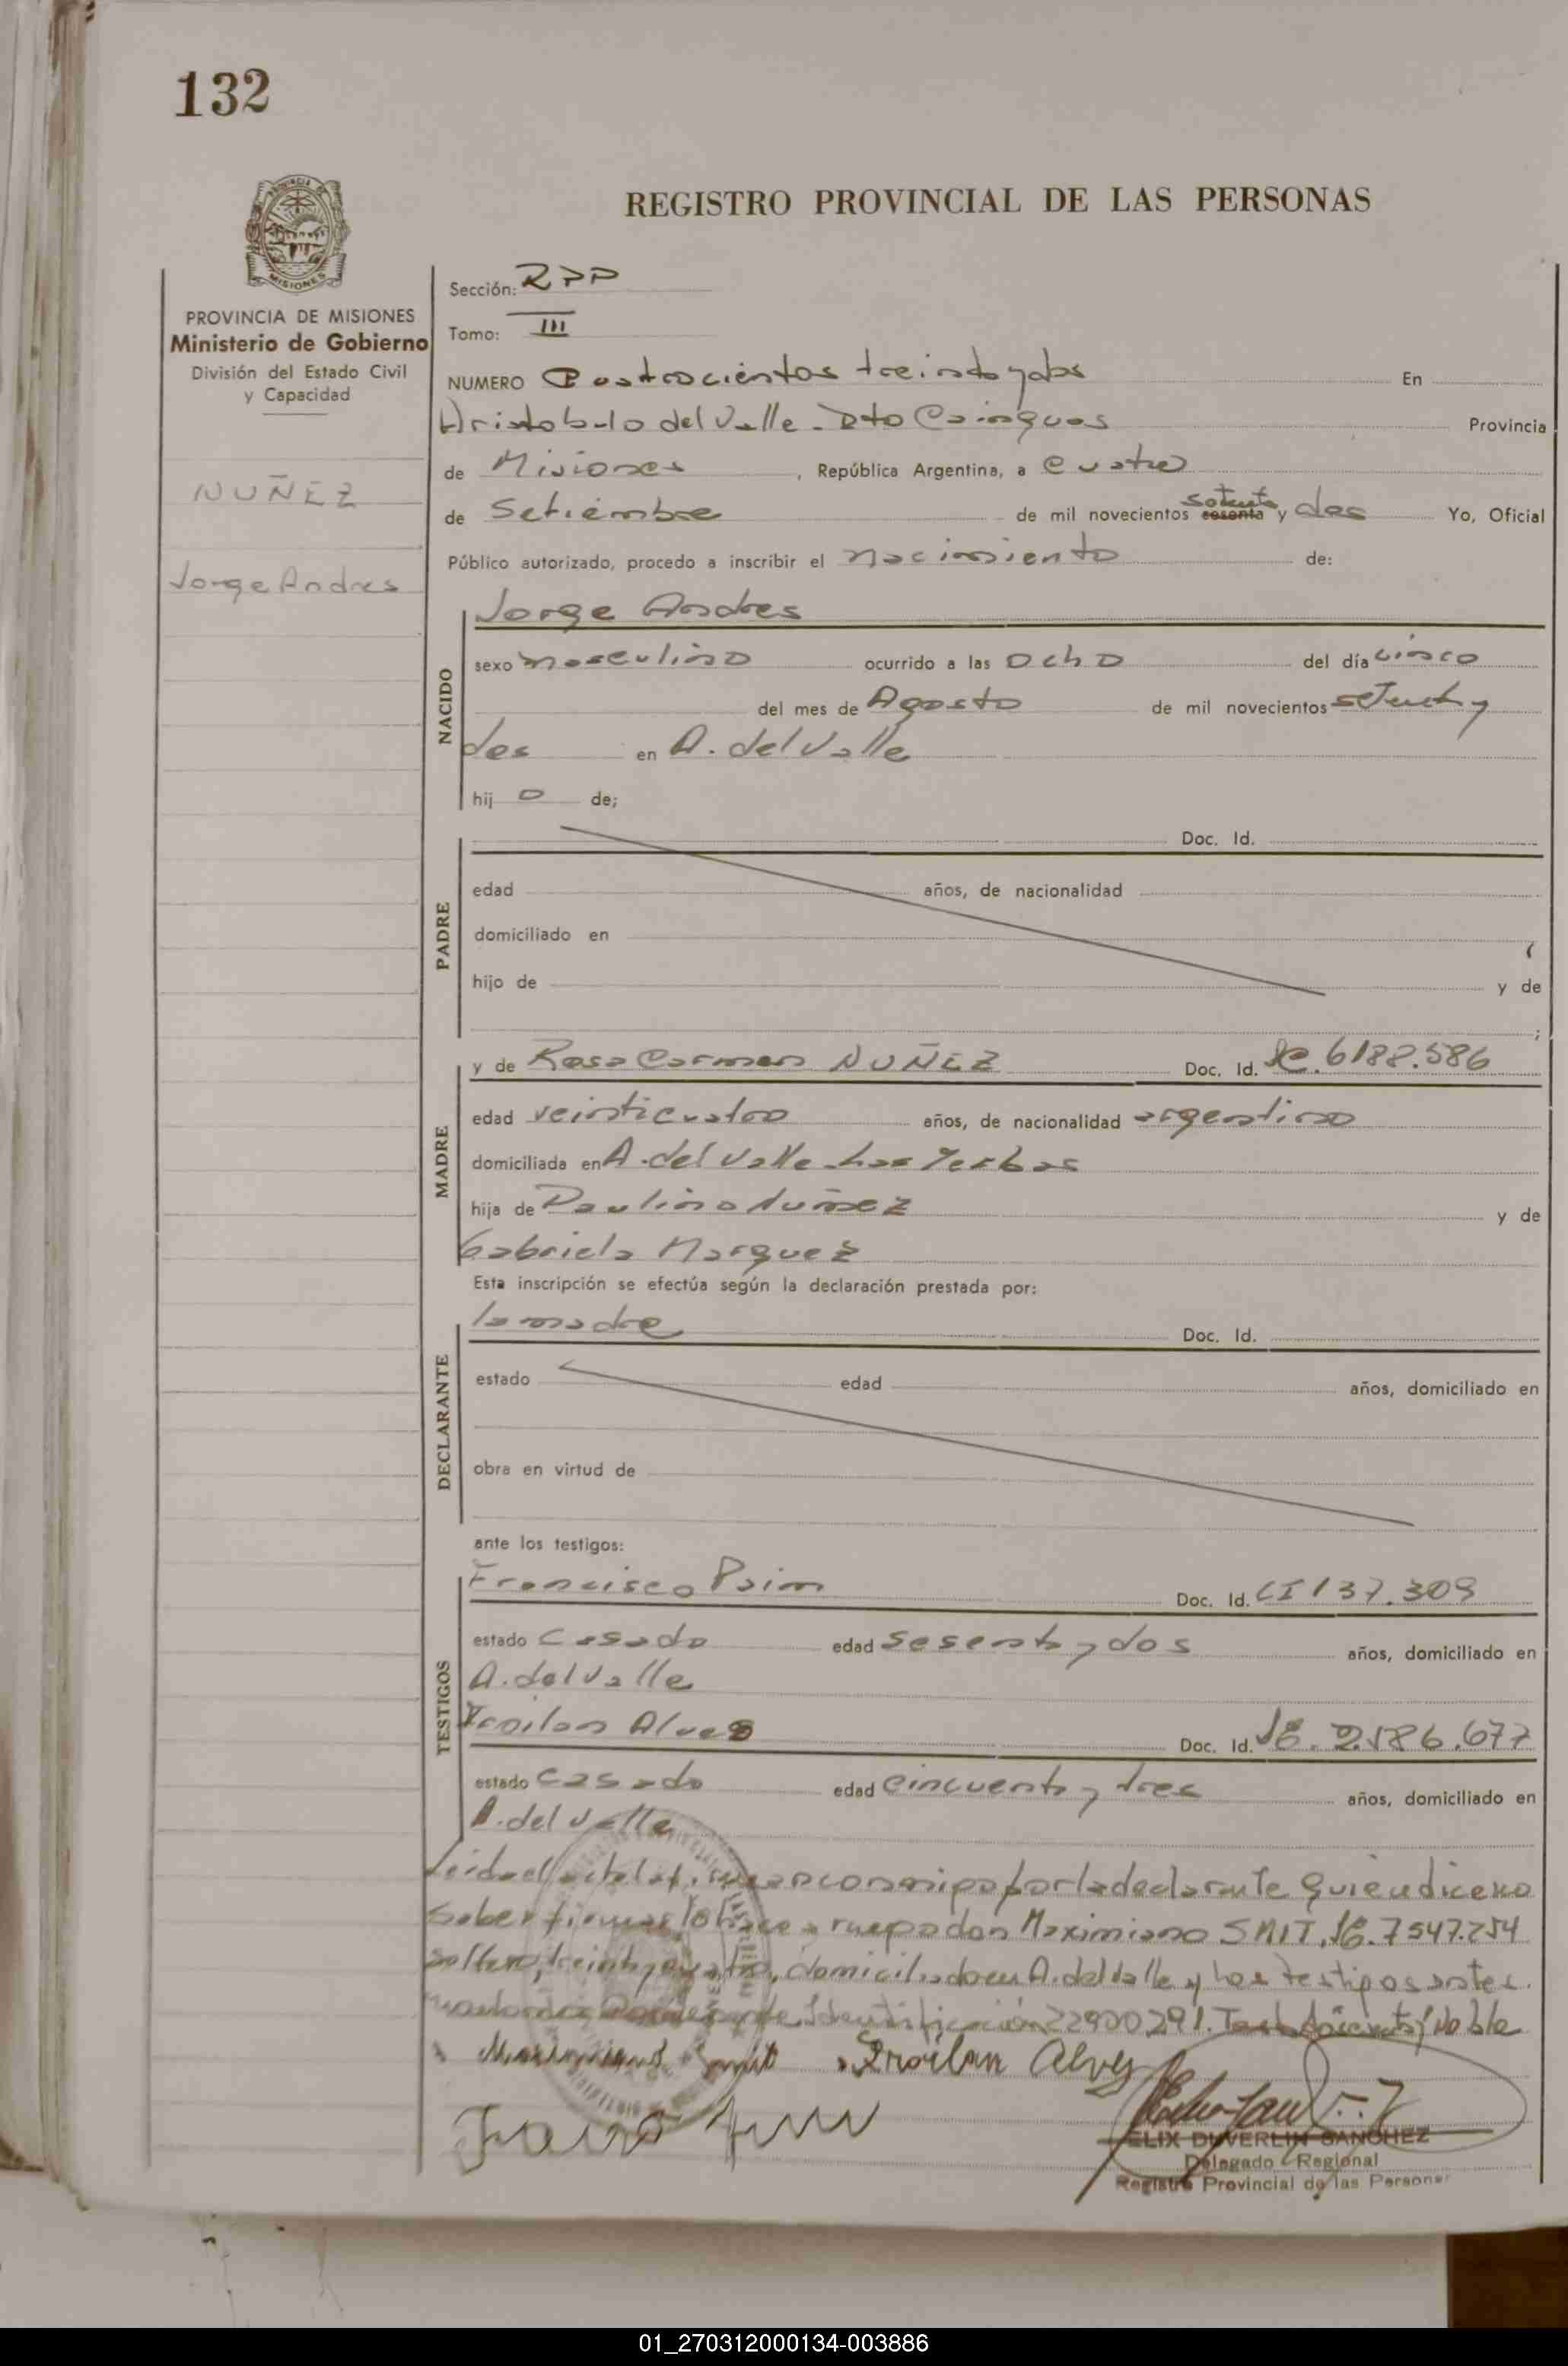 132
PROVINCIA DE
MISIONES
REGISTRO PROVINCIAL DE LAS PERSONAS
PROVINCIA DE MISIONES
Ministerio de Gobierno
División del Estado Civil
y Capacidad
NUÑEZ
Jorge Andres
Sección: RPP
Tomo: III
NUMERO Cuatrocientos treinta y dos En
Aristobulo del Valle - Dto Cainguas Provincia
de Misiones, República Argentina, a cuatro
de Setiembre de mil novecientos setenta sesenta y dos Yo, Oficial
Público autorizado, procedo a inscribir el nacimiento de:
Jorge Andres
NACIDO
sexo masculino ocurrido a las ocho del día cinco
del mes de Agosto de mil novecientos setenta y
dos en A. del Valle
hij o de;
PADRE
Doc. Id.
edad años, de nacionalidad
domiciliado en
hijo de y de
;
MADRE
y de Rosa Carmen NUÑEZ Doc. Id. LC. 6188.586
edad veinticuatro años, de nacionalidad argentina
domiciliada en A. del Valle - Las Yerbas
hija de Paulino Nuñez y de
Gabriela Marquez
Esta inscripción se efectúa según la declaración prestada por:
DECLARANTE
la madre Doc. Id.
estado edad años, domiciliado en
obra en virtud de
ante los testigos:
TESTIGOS
Francisco Paim Doc. Id. CI 137.309
estado casado edad sesenta y dos años, domiciliado en
A. del Valle
Froilan Alves Doc. Id. LE. 2.586.677
estado casado edad cincuenta y tres años, domiciliado en
A. del Valle
Leida el acta la firman conmigo por la declarante quien dice no
saber firmar lo hace a ruego don Maximiano SMIT, LE. 7547.254
soltero, treinta y cuatro, domiciliado en A. del Valle y los testigos antes
de Identificación 22900291. No ble
Maximiano Smit Froilan Alves
FELIX DUVERLIN SANCHEZ
Delegado Regional
Registro Provincial de las Personas
01_270312000134-003886